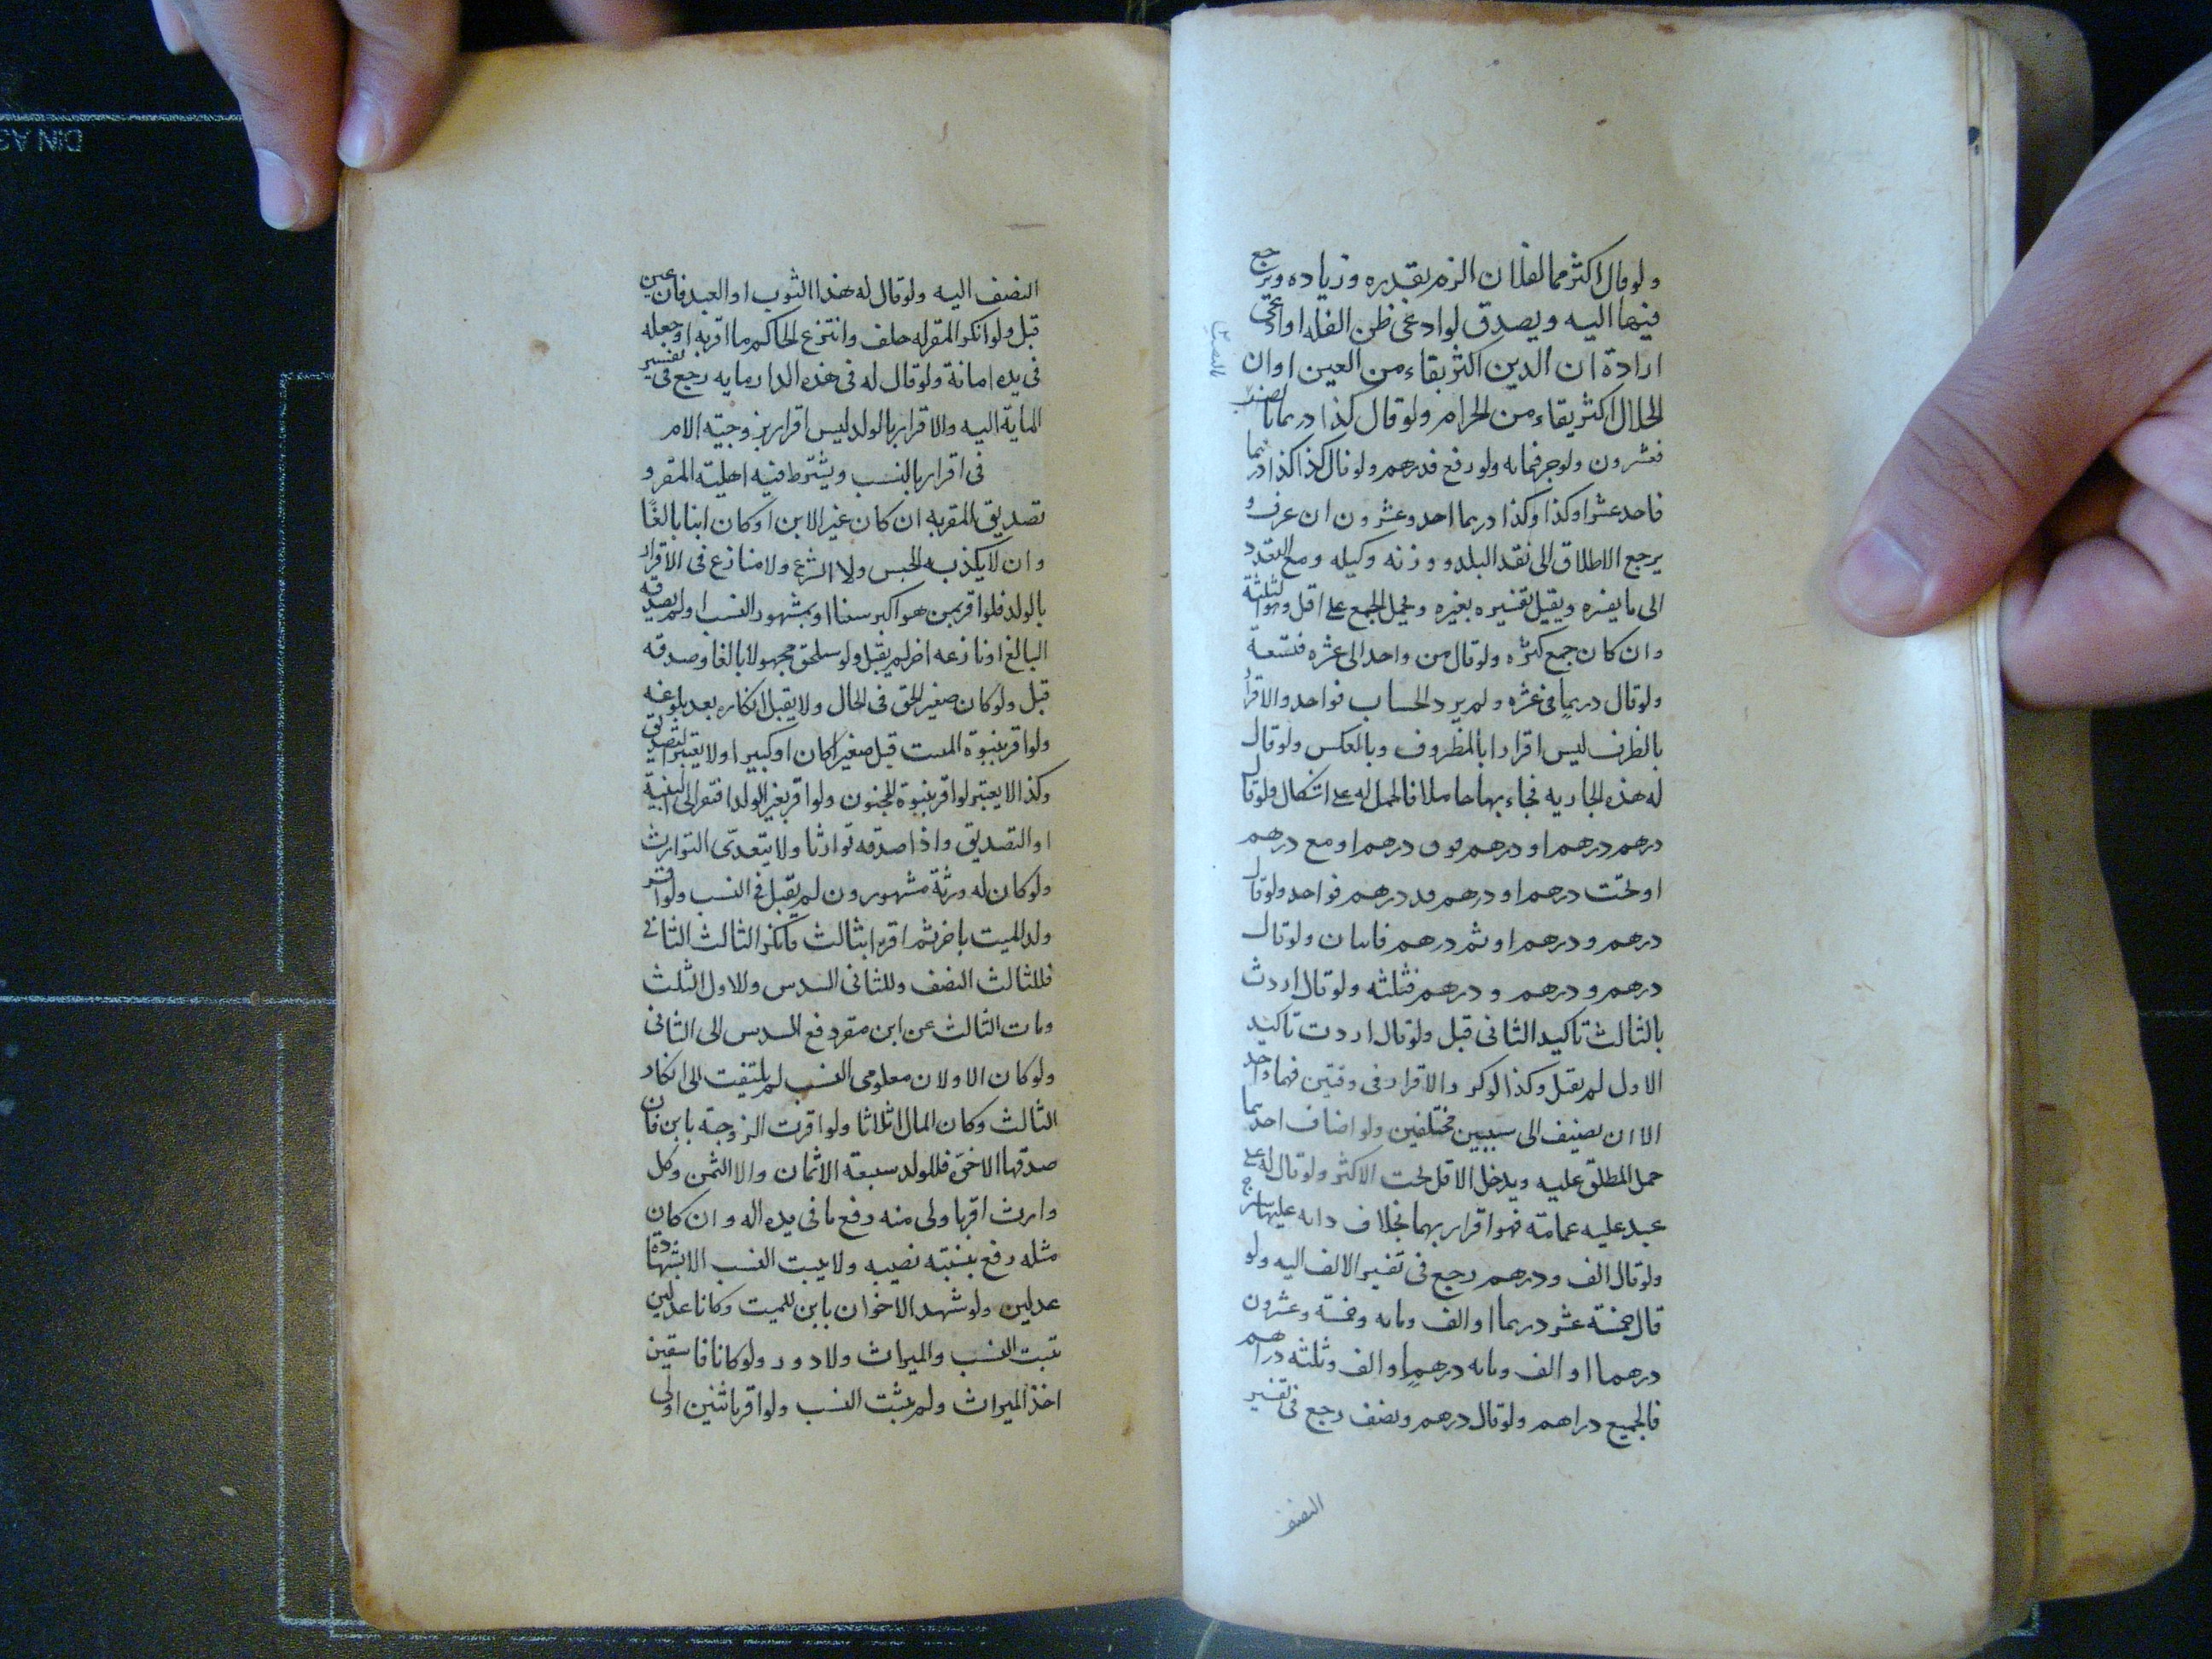 ولو قال اكثر مما لفلان الزم بقدره وزياده ويرجع
فيها اليه ويصدق لو ادعى ظن القله او ادعى
ارادة ان الدين اكثر بقاء من العين او ان
الحلال اكثر بقاء من الحرام ولو قال كذا درهما بالنصب
فعشرون ولو جر فمايه ولو رفع فدرهم ولو قال كذا كذا درهما
فاحد عشر او كذا وكذا درهما احد وعشرون ان عرف و
يرجع الاطلاق الى نقد البلد ووزنه وكيله ومع التعدد
الى ما يفسره ويقبل تفسيره بغيره ويحمل الجمع على اقل وهو الثلثة
وان كان جمع كثره ولو قال من واحد الى عشره فتسعة
ولو قال درهم في عشره ولم يرد الحساب فواحد والاقرار
بالظرف ليس اقرارا بالمظروف وبالعكس ولو قال
له هذه الجاريه فجاء بها حاملا فالحمل له على اشكال ولو قال
درهم درهم او درهم فوق درهم او مع درهم
او تحت درهم او درهم فدرهم فواحد ولو قال
درهم ودرهم او ثم درهم فاثنان ولو قال
درهم ودرهم ودرهم فثلثه ولو قال اردت
بالثالث تاكيد الثانى قبل ولو قال اردت تاكيد
الاول لم يقبل وكذا لو كرر الاقرار في وقتين فهما واحد
الا ان يضيف الى سببين مختلفين ولو اضاف احدهما
حمل المطلق عليه ويدخل الاقل تحت الاكثر ولو قال له على
عبد عليه عمامة فهو اقرار بهما بخلاف دابه عليها سرج
ولو قال الف ودرهم رجع في تفسير الالف اليه ولو
قال خمسة عشر درهما او الف ومايه وخمسة وعشرون
درهما او الف ومايه درهم او الف وثلثه دراهم
فالجميع دراهم ولو قال درهم ونصف رجع في تفسير
النصف
النصف اليه ولو قال له هذا الثوب او العبد فان عين
قبل ولو انكر المقر له حلف وانتزع الحاكم ما اقر به او جعله
في يده امانة ولو قال له في هذه الدار مايه رجع في تفسير
الماية اليه والاقرار بالولد ليس اقرار بزوجية الام
في اقرار بالنسب ويشترط فيه اهلية المقر و
تصديق المقر به ان كان غير الابن او كان ابنا بالغا
وان لا يكذبه الحس ولا الشرع ولا منازع في الاقرار
بالولد فلو اقر بمن هو اكبر سنا او بمشهور النسب او لم يصدقه
البالغ او نازعه اخر لم يقبل ولو استلحق مجهولا بالغا وصدقه
قبل ولو كان صغير الحق في الحال ولا يقبل انكاره بعد بلوغه
ولو اقر ببنوة الميت قبل صغيرا كان او كبيرا ولا يعتبر التصديق
وكذا لا يعتبر لو اقر ببنوة المجنون ولو اقر بغير الولد افتقر الى البينة
او التصديق واذا صدقه توارثا ولا يتعدى التوارث
ولو كان له ورثة مشهورون لم يقبل في النسب ولو اقر
ولد الميت باخر ثم اقرا بثالث فانكر الثالث الثاني
فللثالث النصف وللثاني السدس وللاول الثلث
ومات الثالث عن ابن مقر دفع السدس الى الثاني
ولو كان الاولان معلومى النسب لم يلتفت الى انكار
الثالث وكان المال اثلاثا ولو اقرت الزوجة بابن فان
صدقها الاخوة فللولد سبعة الاثمان والا الثمن وكل
وارث اقر باولى منه دفع ما في يده اله وان كان
مثله دفع بنسبته نصيبه ولا يثبت النسب الا بشهادة
عدلين ولو شهد الاخوان بابن للميت وكانا عدلين
ثبت النسب والميراث ولا دور ولو كانا فاسقين
اخذ الميراث ولم يثبت النسب ولو اقر باثنين اولى